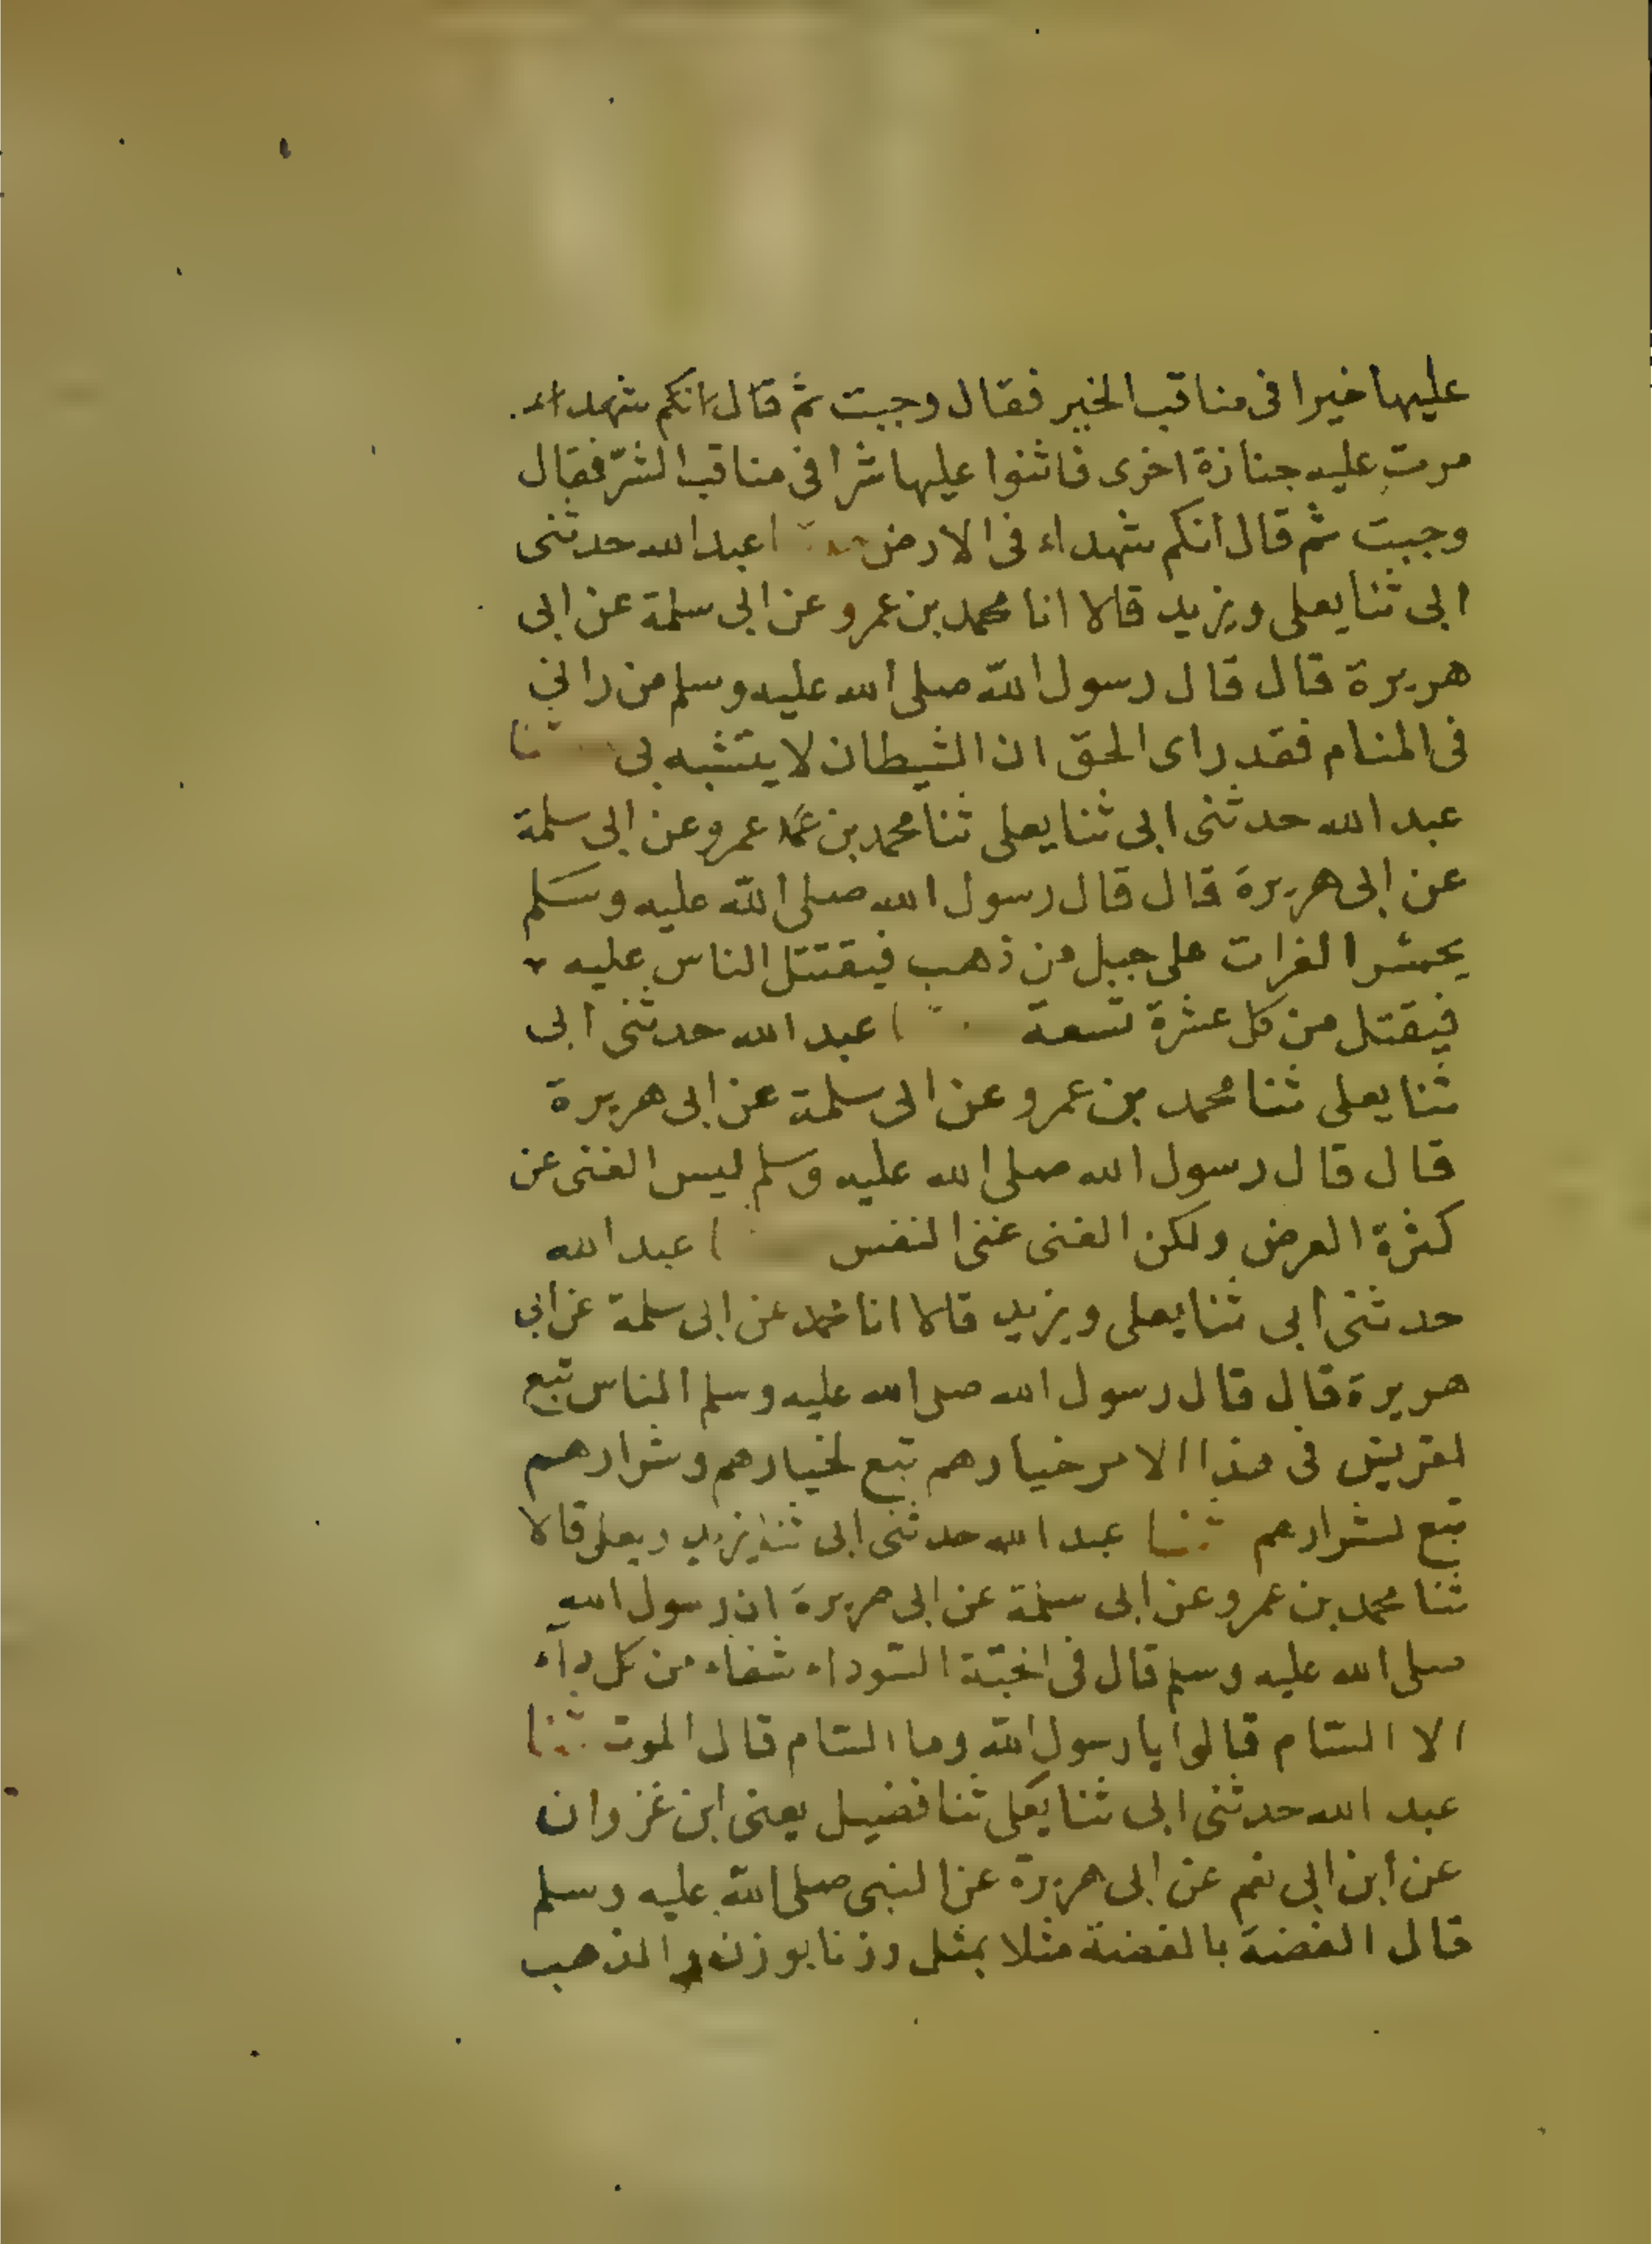 عليها خيرا فى مناقب الخير فقال وجبت ثم قال انكم شهداء
مرت عليه جنازة اخرى فاثنوا عليها شرا فى مناقب الشرّ فقال
وجبت ثم قال انكم شهداء فى الارض عبد الله حدثنى
ابى ثنا يعلى ويزيد قالا انا محمد بن عمرو عن ابى سلمة عن ابى
هريرة قال قال رسول الله صلى الله عليه وسلم من رانى
فى المنام فقد راى الحق ان الشيطان لا يتشبه بى ثنا
عبد الله حدثنى ابى ثنا يعلى ثنا محمد بن عمرو عن ابى سلمة
عن ابى هريرة قال قال رسول الله صلى الله عليه وسلم
يحسر الفرات على جبل من ذهب فيقتتل الناس عليه
فيقتل من كل عشرة تسعة عبد الله حدثنى ابى
ثنا يعلى ثنا محمد بن عمرو عن ابى سلمة عن ابى هريرة
قال قال رسول الله صلى الله عليه وسلم ليس الغنى عن
كثرة العرض ولكن الغنى غنى النفس عبد الله
حدثنى ابى ثنا يعلى ويزيد قالا انا محمد عن ابى سلمة عن ابى
هريرة قال قال رسول الله صلى الله عليه وسلم الناس تبع
لقريش فى هذا الامر خيارهم تبع لخيارهم وشرارهم
تبع لشرارهم ثنا عبد الله حدثنى ابى ثنا يزيد ويعلى قالا
ثنا محمد بن عمرو عن ابى سلمة عن ابى هريرة ان رسول الله
صلى الله عليه وسلم قال فى الحبّة السّوداء شفاء من كل داء
الا السّام قالوا يا رسول الله وما السّام قال الموت ثنا
عبد الله حدثنى ابى ثنا يعلى ثنا فضيل يعنى ابن غزوان
عن ابن ابى نعم عن ابى هريرة عن النبى صلى الله عليه وسلم
قال الفضة بالفضة مثلا بمثل وزنا بوزن والذهب